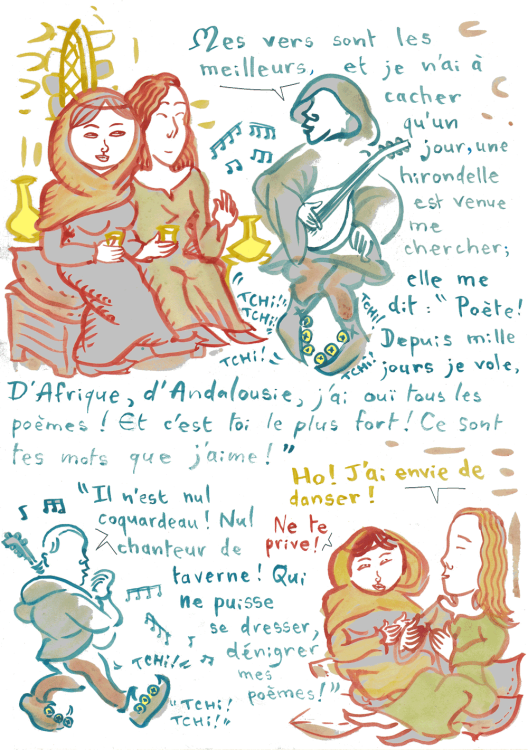 Mes vers sont les
meilleurs, et je n'ai à
cacher
qu'un
jour, une
hirondelle
est venue
me
chercher;
elle me
dit : " Poète!
Depuis mille
jours je vole,
D'Afrique, d'Andalousie, j'ai ouï tous les
poèmes ! Et c'est toi le plus fort! Ce sont
tes mots que j'aime ! "
"TCHi!"
TCHi!
TCHi!
TCHi!
TCHi!
Ho! J'ai envie de
danser !
Ne te
prive!
"Il n'est nul
coquardeau! Nul
chanteur de
taverne! Qui
ne puisse
se dresser,
dénigrer
mes
poèmes!"
"TCHi!"
"TCHi!
TCHi!"